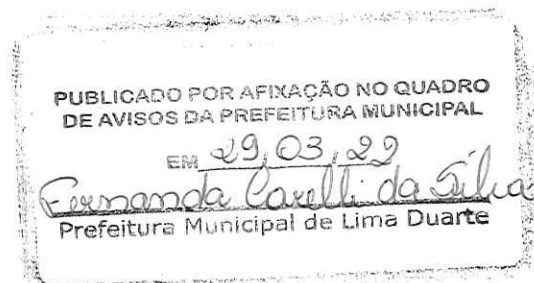 PUBLICADO POR AFIXAÇÃO NO QUADRO
DE AVISOS DA PREFEITURA MUNICIPAL
EM 29,03,22
Fernanda Carelli da Silva
Prefeitura Municipal de Lima Duarte